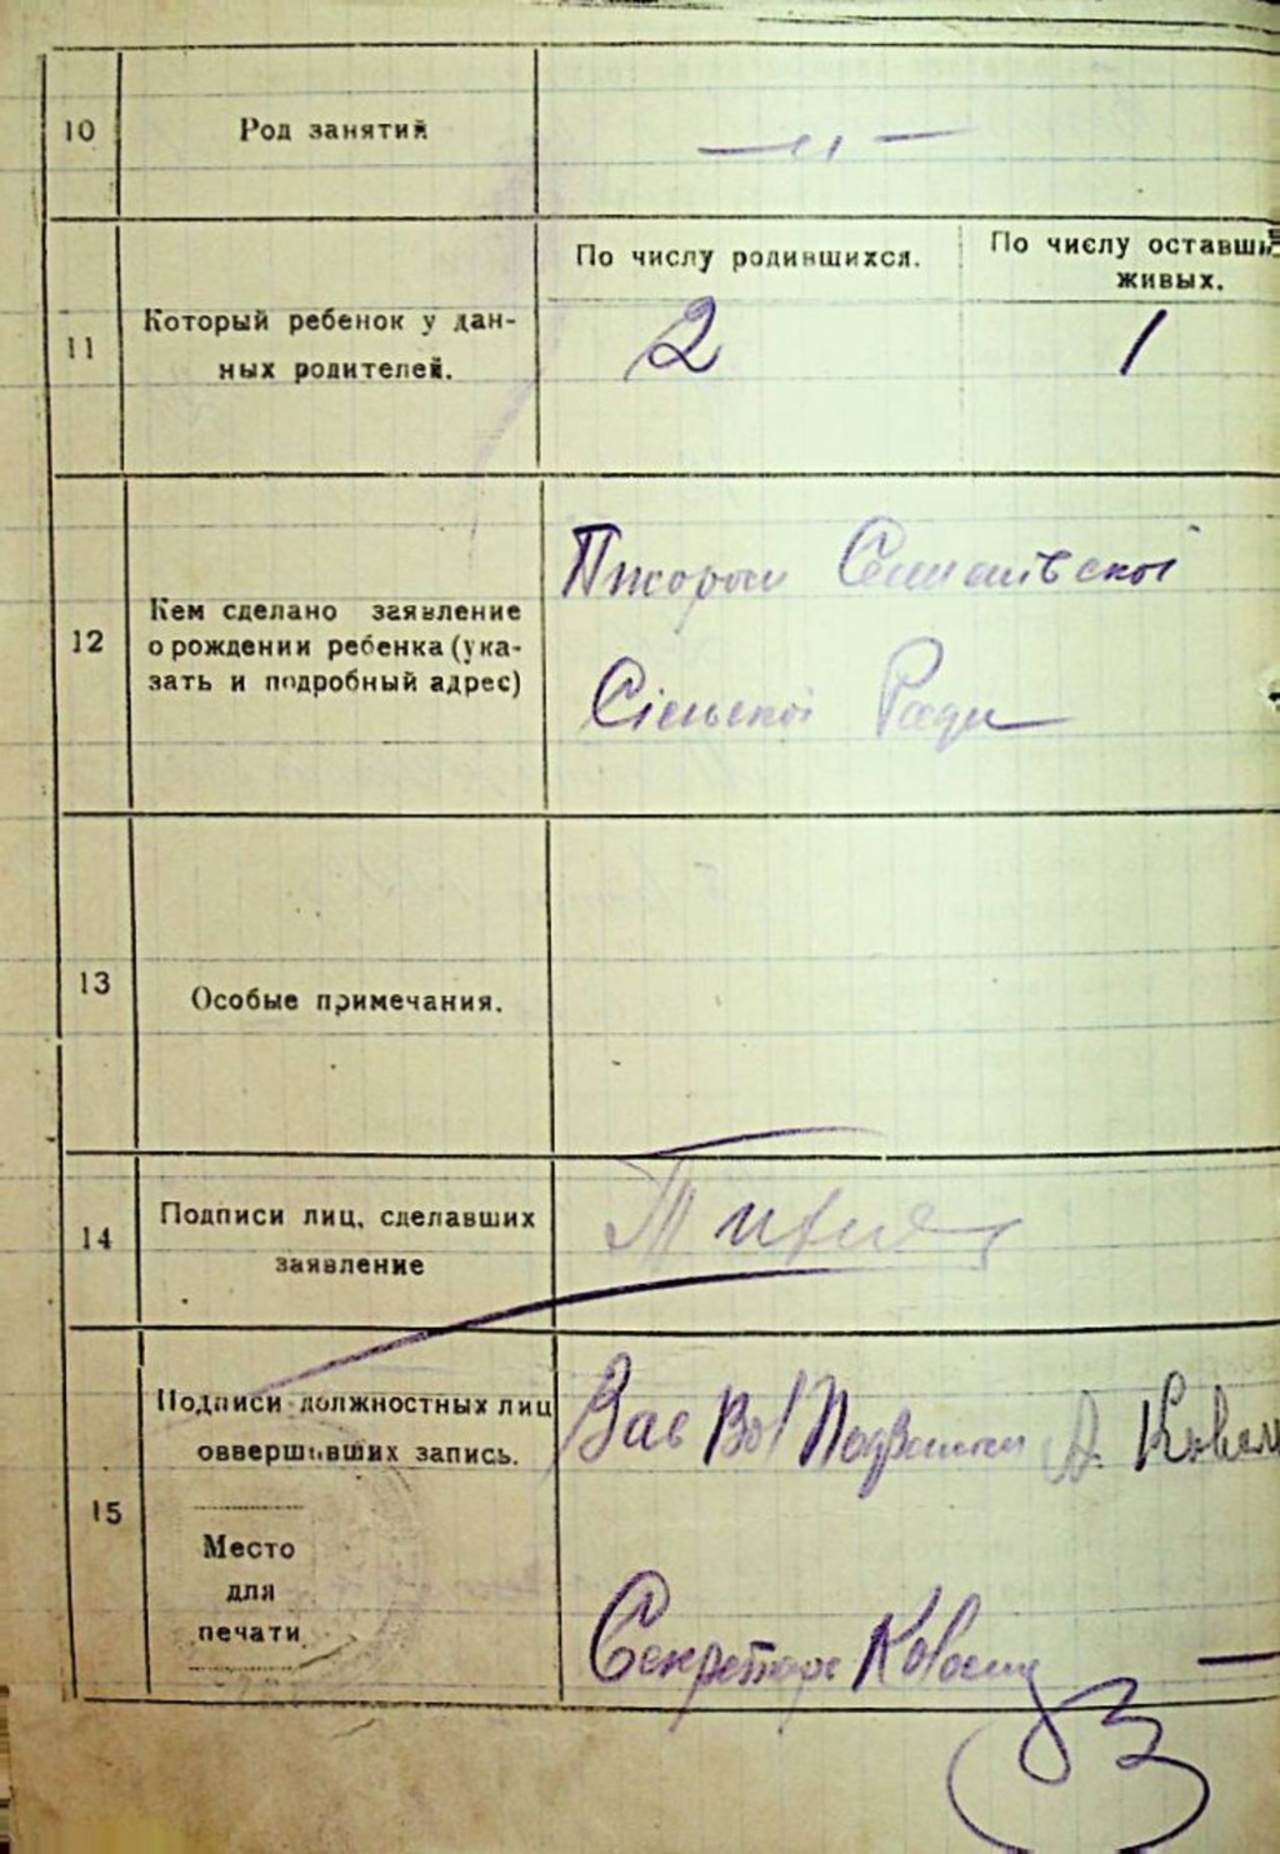 10
Род занятий
— 〃 —
11
Который ребенок у дан-
ных родителей.
По числу родившихся.
2
По числу оставши
живых.
1
12
Кем сделано заявление
о рождении ребенка (ука-
зать и подробный адрес)
Сільської Ради
13
Особые примечания.
14
Подписи лиц, сделавших
заявление
15
Подписи должностных лиц
овверш‚вших запись.
Место
для
печати
Зав
А. Ковал
Секретарь